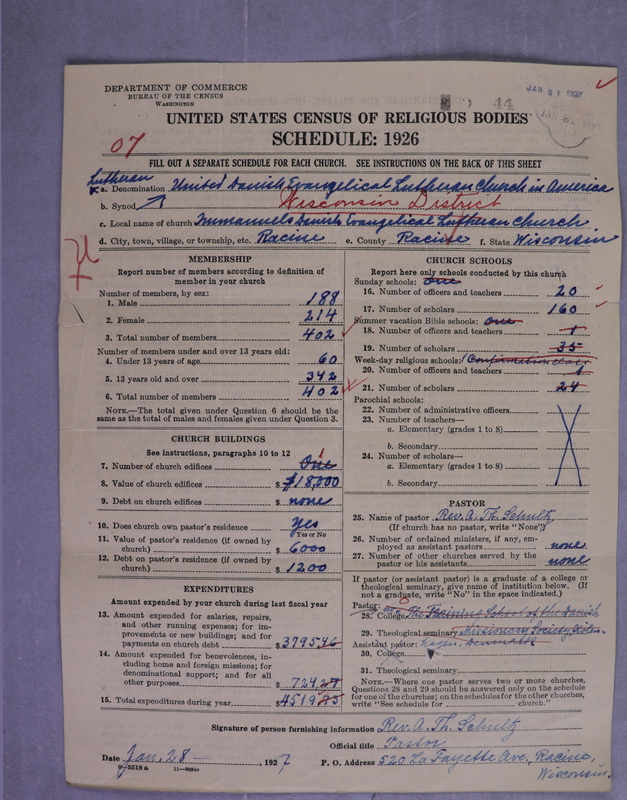 DEPARTMENT OF COMMERCE
BUREAU OF THE CENSUS
WASHINGTON
JAN 31 1927
44
UNITED STATES CENSUS OF RELIGIOUS BODIES
SCHEDULE: 1926
07
FILL OUT A SEPARATE SCHEDULE FOR EACH CHURCH. SEE INSTRUCTIONS ON THE BACK OF THIS SHEET
Lutheran
a. Denomination United Danish Evangelical Lutheran Church in America
b. Synod Wisconsin District
c. Local name of church Immanuels Danish Evangelical Lutheran Church
d. City, town, village, or township, etc. Racine e. County Racine f. State Wisconsin
MEMBERSHIP
Report number of members according to definition of
member in your church
Number of members, by sex:
1. Male 188
2. Female 214
3. Total number of members 402
Number of members under and over 13 years old:
4. Under 13 years of age 60
5. 13 years old and over 342
6. Total number of members 402
NOTE.—The total given under Question 6 should be
the same as the total of males and females given under Question 3.
CHURCH BUILDINGS
See instructions, paragraphs 10 to 12
7. Number of church edifices One 1
8. Value of church edifices $18,000
9. Debt on church edifices $ none
10. Does church own pastor's residence yes
Yes or No
11. Value of pastor's residence (if owned by
church) $ 6000
12. Debt on pastor's residence (if owned by
church) $ 1200
EXPENDITURES
Amount expended by your church during last fiscal year
13. Amount expended for salaries, repairs,
and other running expenses; for im-
provements or new buildings; and for
payments on church debt $ 3795 46
14. Amount expended for benevolences,
including home and foreign missions; for
denominational support; and for all
other purposes $ 724
15. Total expenditures during year $ 4519
CHURCH SCHOOLS
Report here only schools conducted by this church
Sunday schools: one
16. Number of officers and teachers 20
17. Number of scholars 160
Summer vacation Bible schools: one
18. Number of officers and teachers 1
19. Number of scholars 35
Week-day religious schools: Confirmation class
20. Number of officers and teachers 1
21. Number of scholars 24
Parochial schools:
22. Number of administrative officers
23. Number of teachers—
a. Elementary (grades 1 to 8)
b. Secondary
24. Number of scholars—
a. Elementary (grades 1 to 8)
b. Secondary
PASTOR
25. Name of pastor Rev. A. Th. Schultz
(If church has no pastor, write "None")
26. Number of ordained ministers, if any, em-
ployed as assistant pastors none
27. Number of other churches served by the
pastor or his assistants none
If pastor (or assistant pastor) is a graduate of a college or
theological seminary, give name of institution below. (If
not a graduate, write "No" in the space indicated.)
Pastor:
28. College The Training School of the Danish
29. Theological seminary Missionary Society,
Assistant pastor: hagen, Denmark
30. College
31. Theological seminary
NOTE.—Where one pastor serves two or more churches,
Questions 28 and 29 should be answered only on the schedule
for one of the churches; on the schedules for the other churches,
write "See schedule for church."
Signature of person furnishing information Rev. A. Th. Schultz
Official title Pastor
Date Jan. 28, 1927 P. O. Address 520 La Fayette Ave., Racine,
Wisconsin.
8-5518 a 11-9034